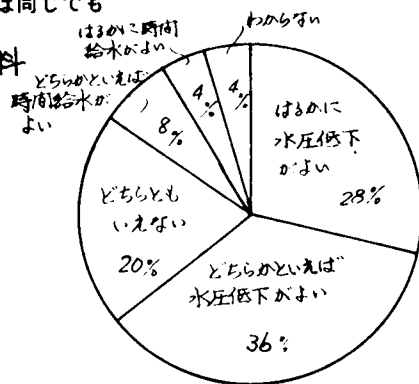 は同じでも
料
わからない
4%
はるかに時間
給水がよい
4%
どちらかといえば
時間給水が
よい
8%
はるかに
水圧低下
がよい
28%
どちらとも
いえない
20%
どちらかといえば
水圧低下がよい
36%